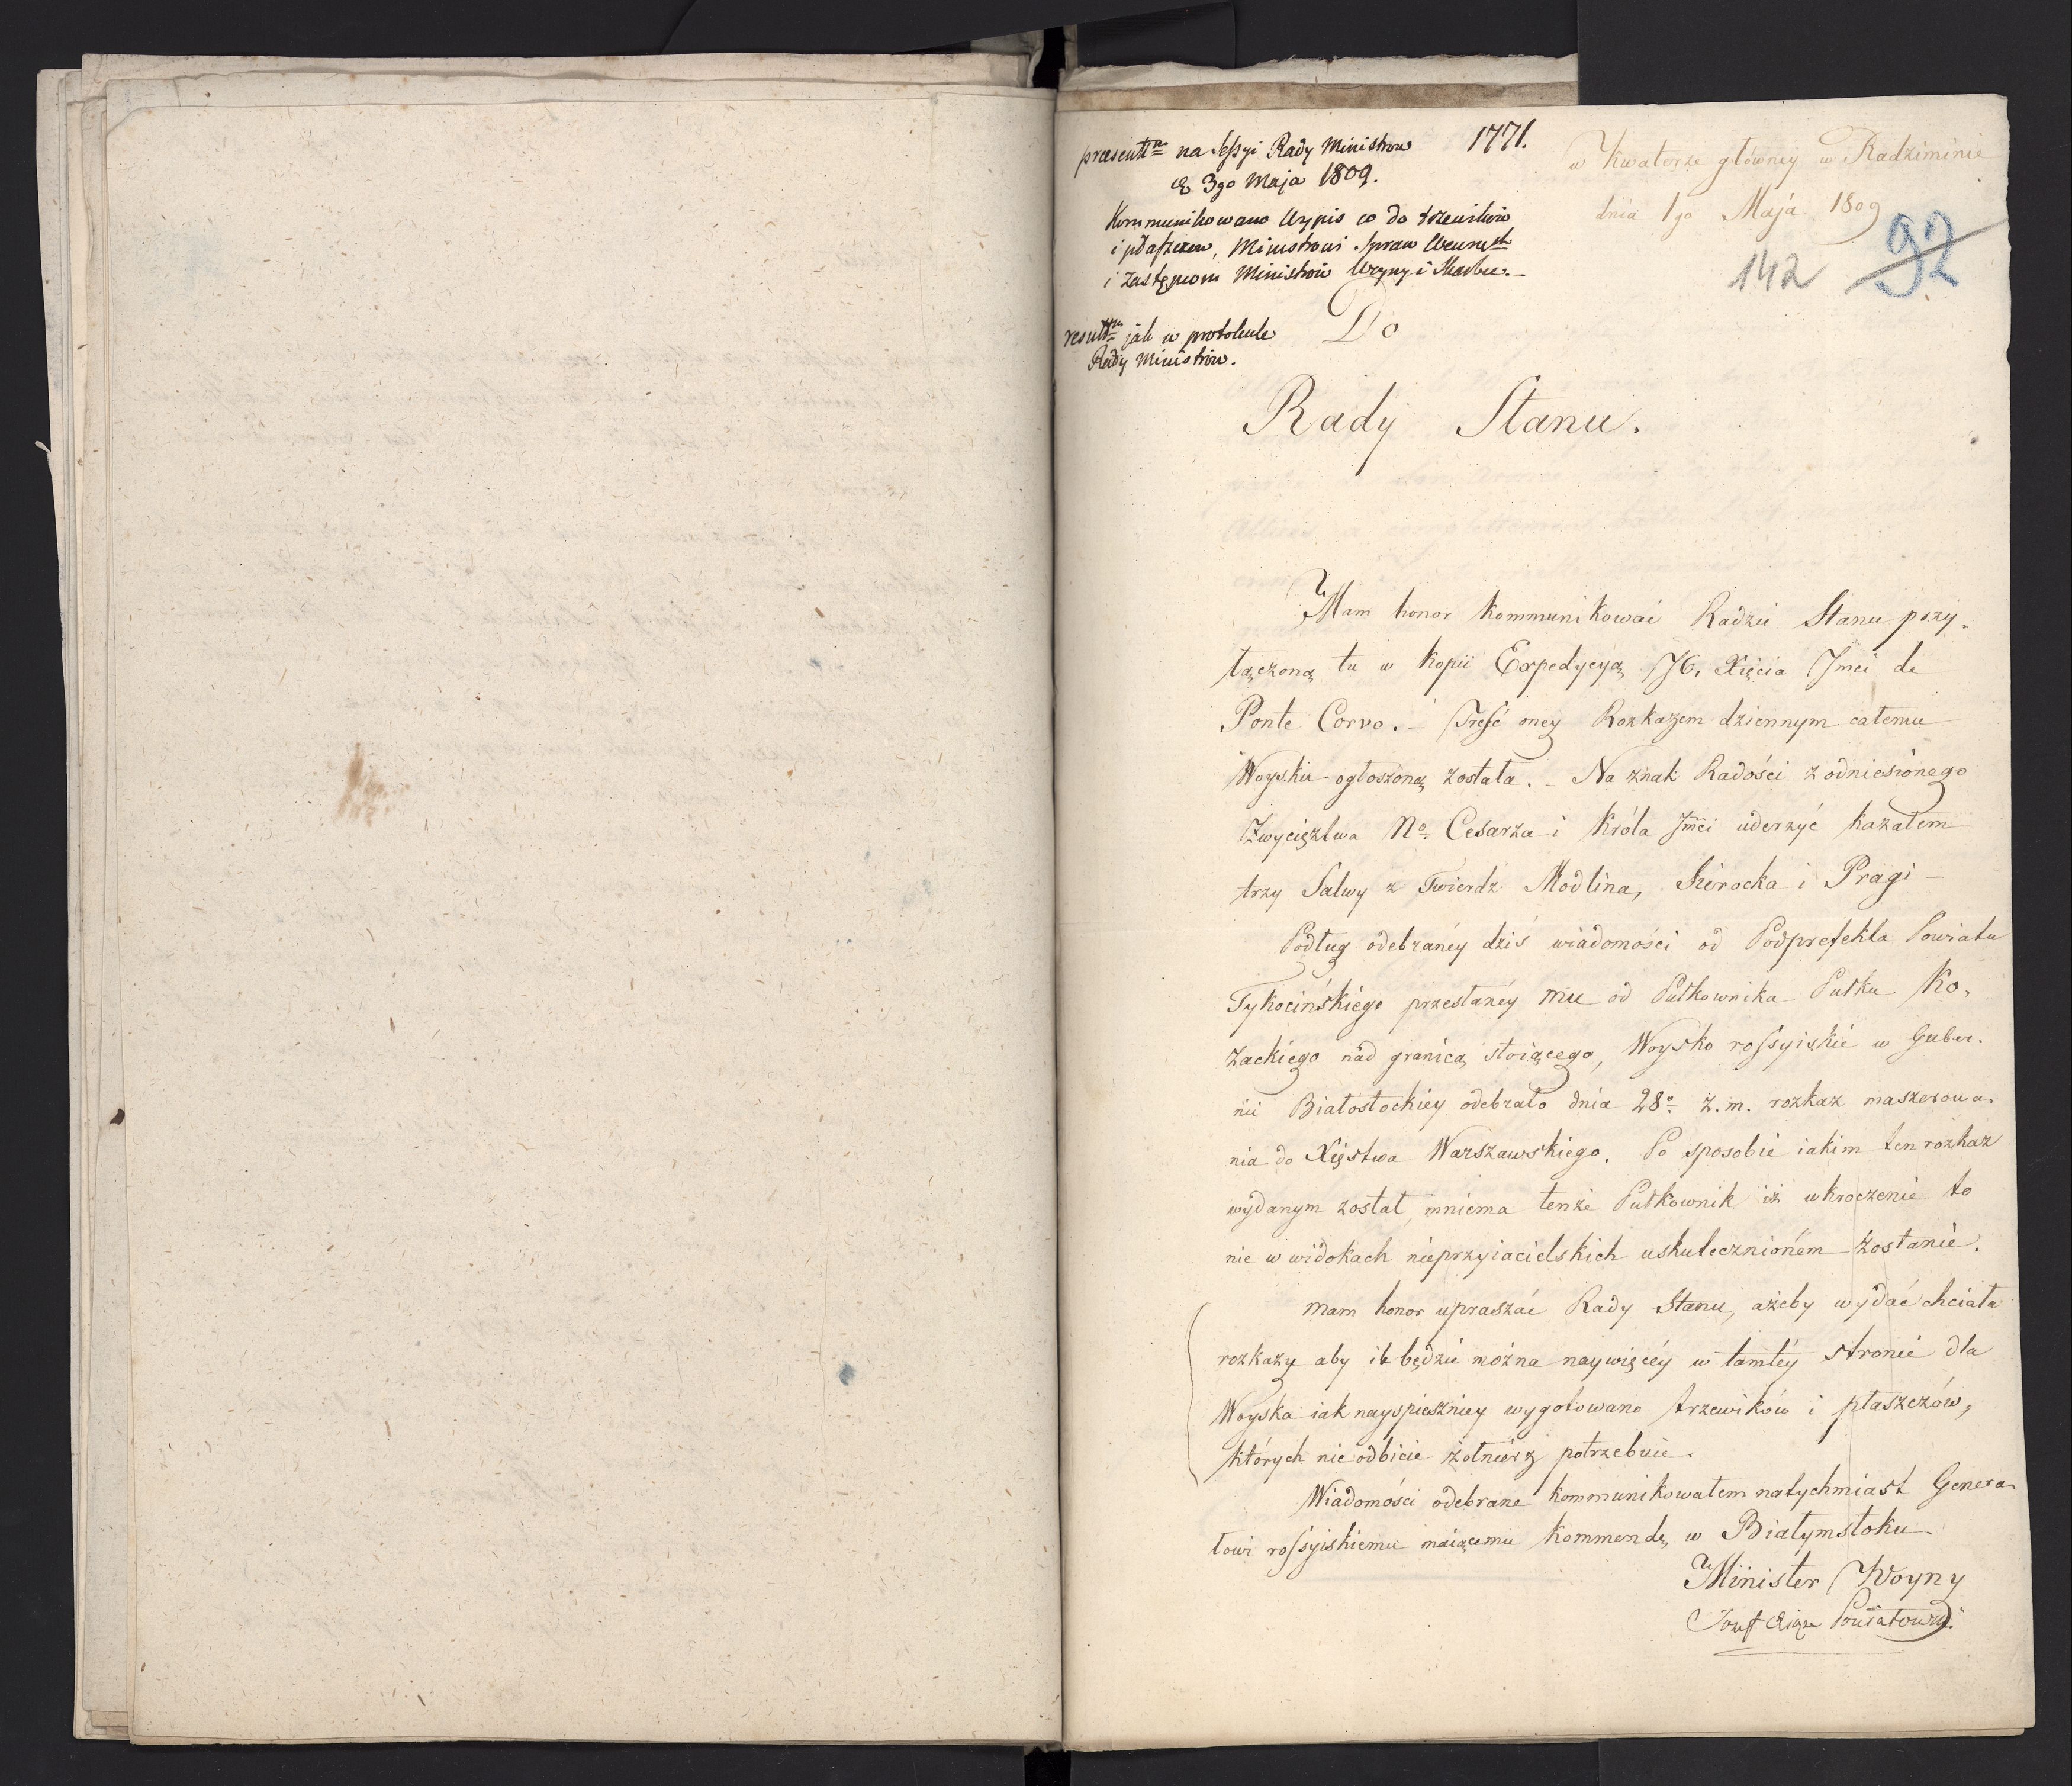 praesent<sup>m</sup> na Sessyi Rady Ministrow
d. 3go Maja 1809.
1771.
w Kwaterze główney w Radziminie
dnia 1go Maja 1809
Kommunikowano Wypis co do trzewików
i płaszczów, Ministrowi Spraw Wewn.
i Zastępcom Ministrów Woyny i Skarbu. –
142 92
result<sup>m</sup> jak w protokule
Rady Ministrów.
Do
Rady Stanu.
Mam honor kommunikować Radzie Stanu przy-
łączoną tu w kopii Expedycyą JO. Xięcia Jmci de
Ponte Corvo. – Treść oney Rozkazem dziennym całemu
Woysku ogłoszoną została. – Na znak Radości z odniesionego
Zwycięztwa No. Cesarza i Króla Jmci uderzyć kazałem
trzy Salwy z Twierdz Modlina, Sierocka i Pragi –
Podług odebraney dziś wiadomości od Podprefekta Powiatu
Tykocińskiego przesłaney mu od Pułkownika Pułku Ko-
zackiego nad granicą stoiącego, Woysko rossyiskie w Guber-
nii Białostockiey odebrało dnia 28o z. m. rozkaz maszerowa-
nia do Xięstwa Warszawskiego. Po sposobie iakim ten rozkaz
wydanym został, mniema tenże Pułkownik iż wkroczenie to
nie w widokach nieprzyiacielskich uskutecznioném zostanie.
mam honor upraszać Rady Stanu, ażeby wydać chciała
rozkazy aby ile będzie można naywięcéy w tamtéy stronie dla
Woyska iak nayspieszniey wygotowano trzewików i płaszczów,
których nieodbicie żołnierz potrzebuie.
Wiadomości odebrane kommunikowałem natychmiast Genera-
łowi rossyiskiemu maiącemu kommendę w Białymstoku.
Minister Woyny
Józef Xiąże Poniatowski